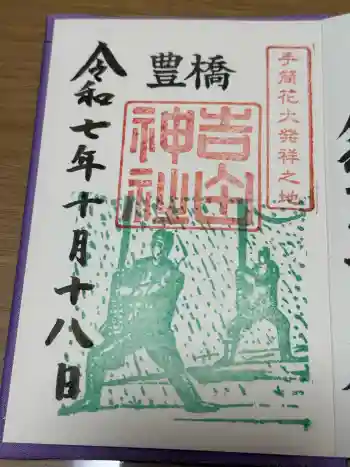 手筒花火発祥之地
豊橋
吉田
神社
令和七年十月十八日